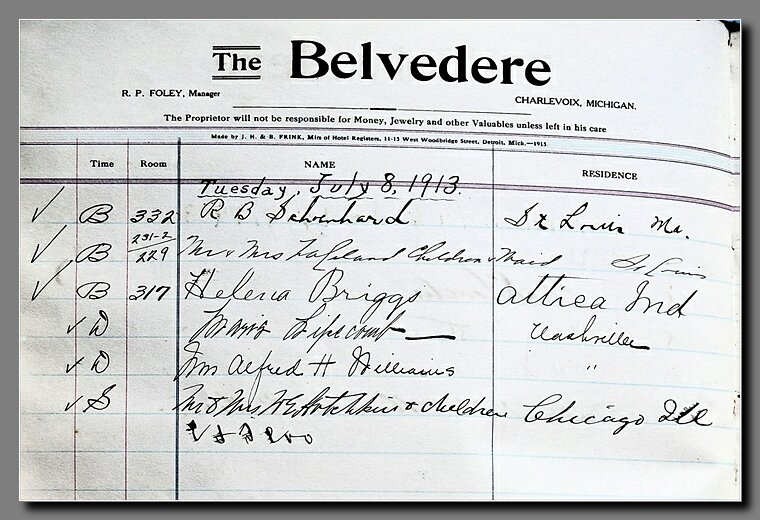 The Belvedere
R. P. FOLEY, Manager
CHARLEVOIX, MICHIGAN.
The Proprietor will not be responsible for Money, Jewelry and other Valuables unless left in his care
Made by J. H. & B. FRINK, Mfrs of Hotel Registers, 11-15 West Woodbridge Street, Detroit, Mich.—1913
Time Room NAME RESIDENCE
Tuesday, July 8, 1913.
B 332 R B St Louis Mo.
231-2
B 229 Mr & Mrs Children & Maid St Louis
B 317 Helena Briggs Attica Ind
D Lipscomb Nashville
D Alfred H Williams "
S Mr & Mrs W E Hotchkiss & children Chicago Ill